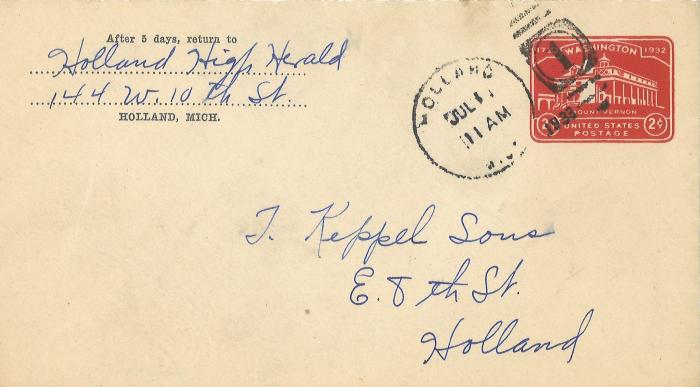 After 5 days, return to
Holland High Herald
144 W. 10 th St.
HOLLAND, MICH.
HOLLAND
JUL
11 AM
1
1732 WASHINGTON 1932
MOUNT VERNON
2¢ UNITED STATES 2¢
POSTAGE
T. Keppel Sons
E. 8 th St.
Holland